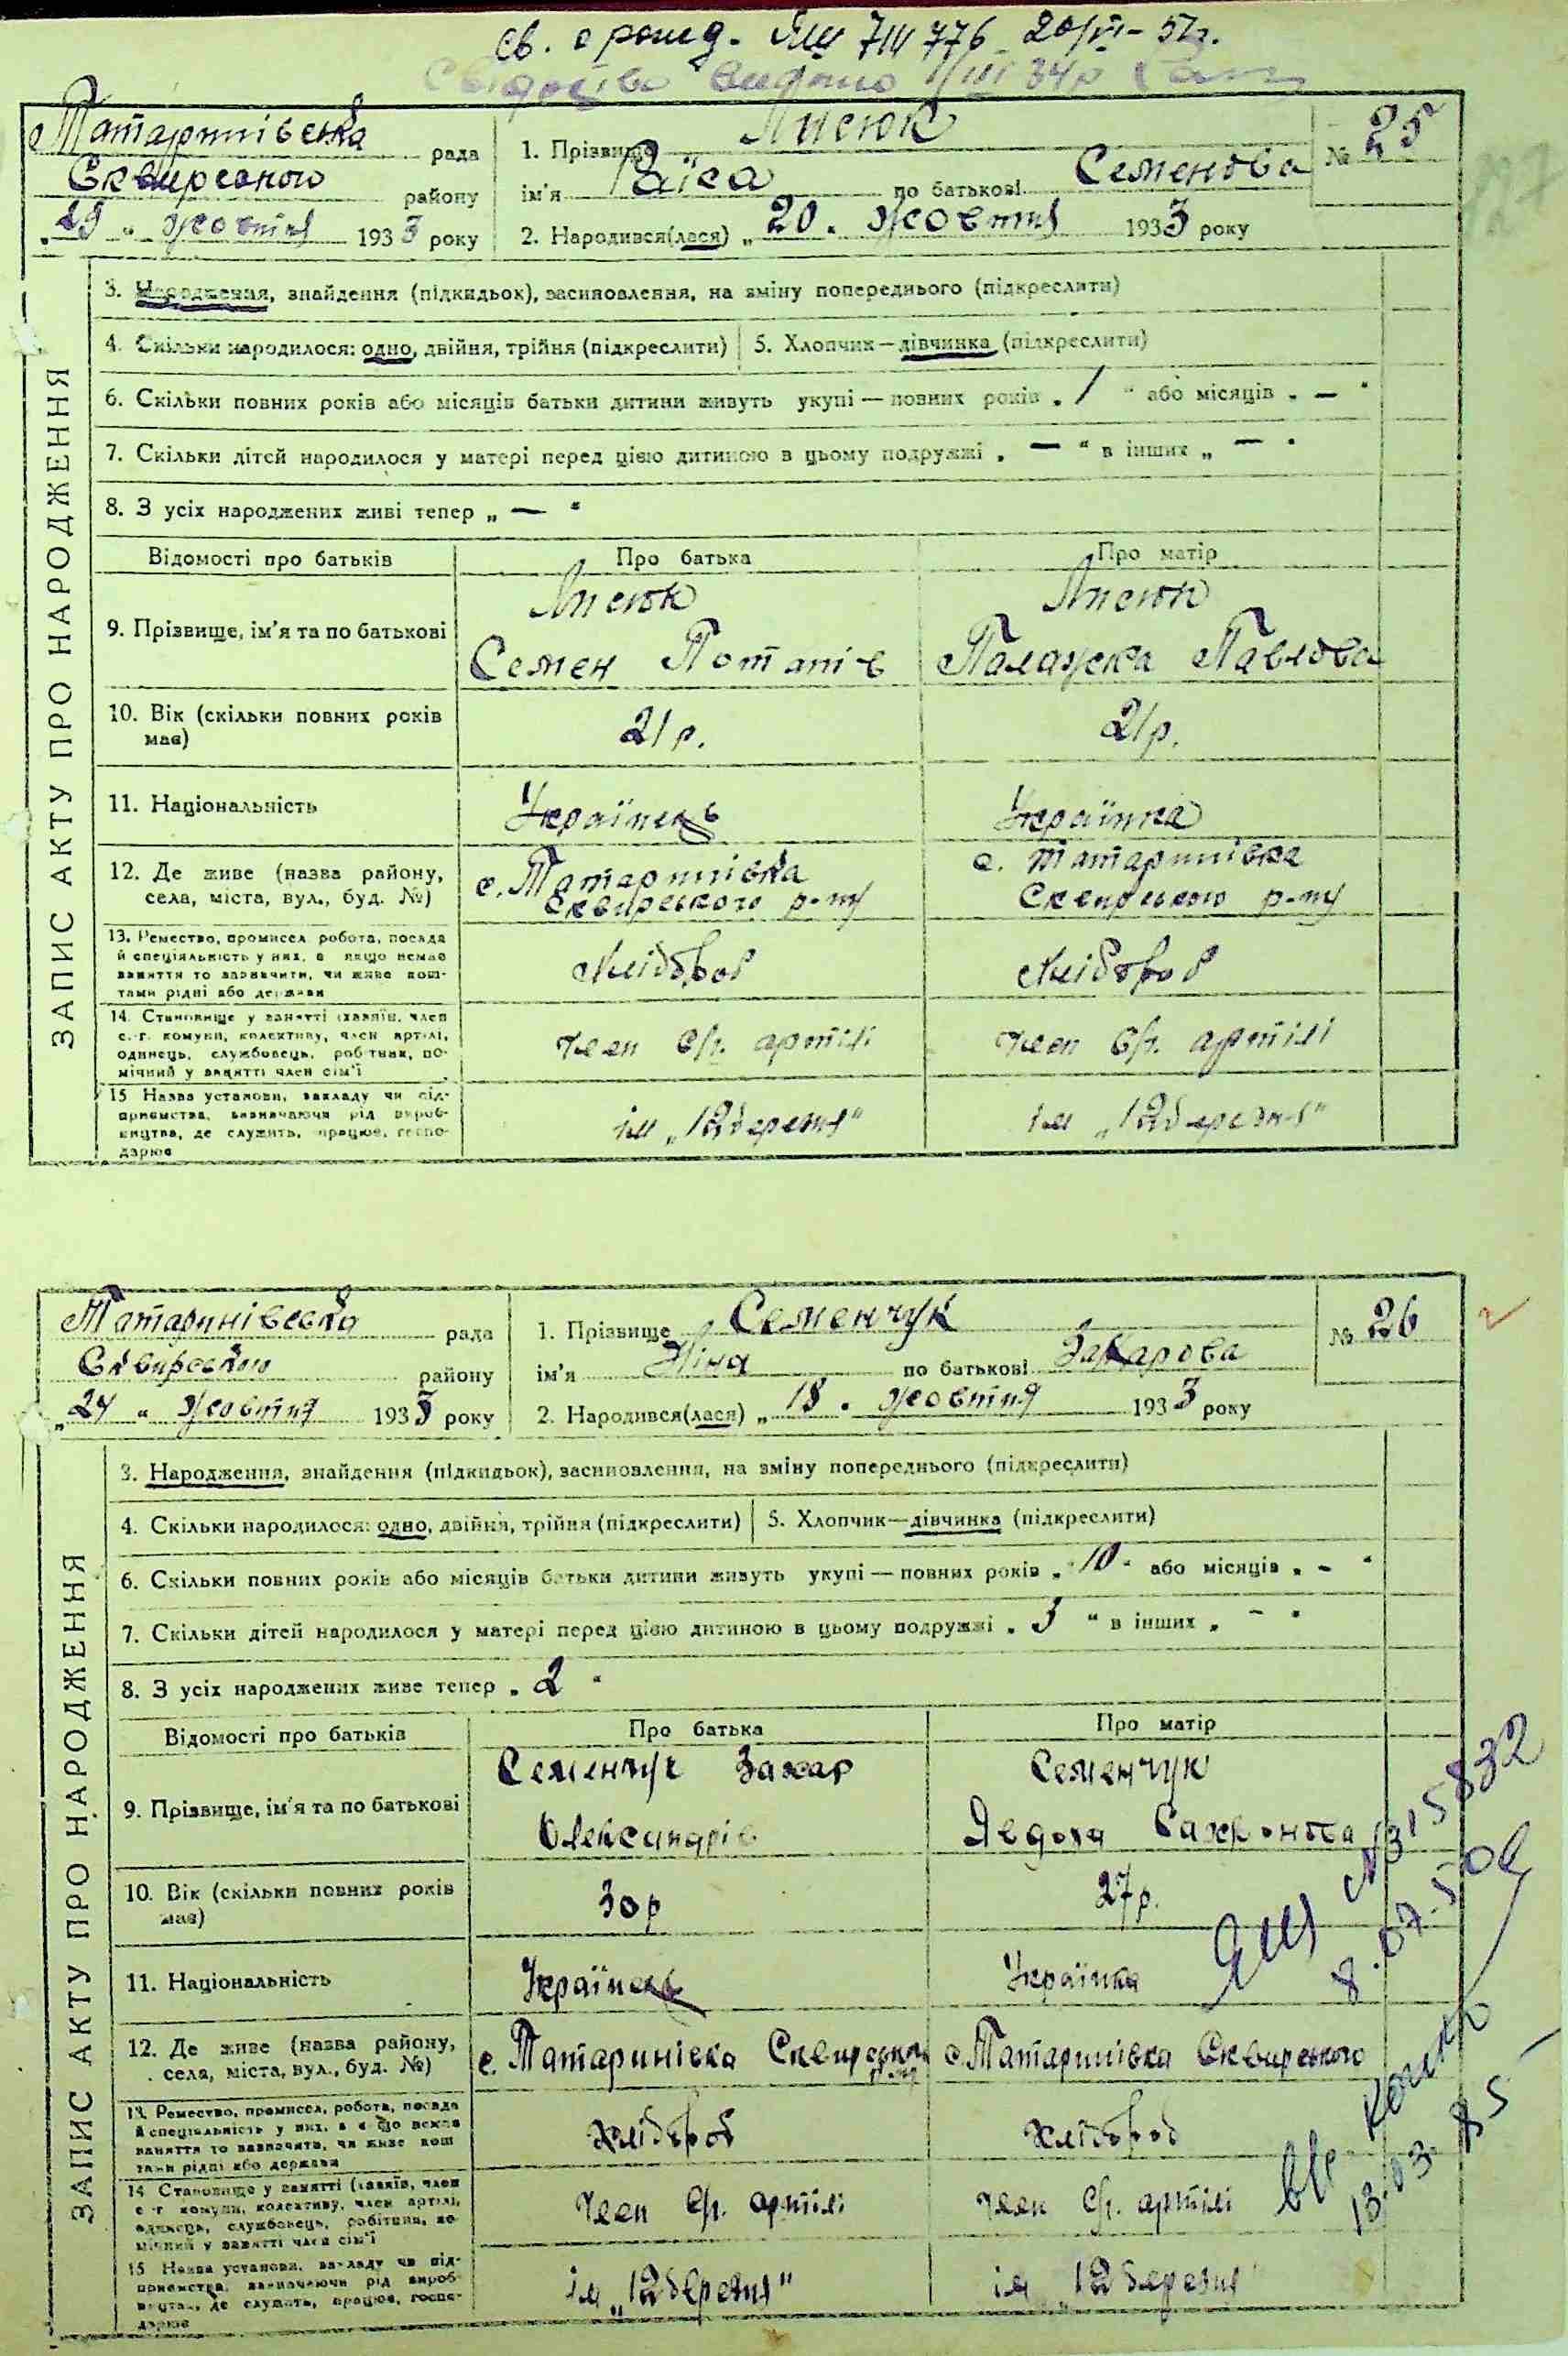 св. о рожд. ЯШ 7111776 20/VI-57г.
Свідоцтво видано 1/III 34р
Татаринівська рада
Сквирського району
„29 “ жовтня 1933 року
1. Прізвище Лисюк
ім'я Раїса по батькові Семенова
2. Народився(лася) „ 20 . жовтня 1933 року
№ 25
ЗАПИС АКТУ ПРО НАРОДЖЕННЯ
3. Народження, знайдення (підкидьок), засиновлення, на зміну попереднього (підкреслити)
4. Скільки народилося: одно, двійня, трійня (підкреслити) 5. Хлопчик—дівчинка (підкреслити)
6. Скільки повних років або місяців батьки дитини живуть укупі — повних років „ 1 “ або місяців „ — “
7. Скільки дітей народилося у матері перед цією дитиною в цьому подружжі „ — “ в інших „ — “
8. З усіх народжених живі тепер „ — “
Відомості про батьків Про батька Про матір
9. Прізвище, ім'я та по батькові
Лисюк Лисюк
Семен Потапів Палажка Павлова
10. Вік (скільки повних років має)
21р. 21р.
11. Національність Українець Українка
12. Де живе (назва району, села, міста, вул., буд. №)
с. Татаринівка с. Татаринівка
Сквирського р-ну Сквирського р-ну
13. Ремество, промисел, робота, посада й спеціяльність у них, а якщо немає заняття то зазначити, чи живе коштами рідні або держави
Хлібороб Хлібороб
14. Становище у занятті (хазяїн, член с.-г. комуни, колективу, член артілі, одинець, службовець, робітник, помічний у занятті член сім'ї
член с/г. артілі член с/г. артілі
15 Назва установи, закладу чи підприємства, визначаючи рід виробництва, де служить, працює, господарює
ім „12 березня“ ім „12 березня“
Татаринівська рада
Сквирського району
„24 “ жовтня 1933 року
1. Прізвище Семенчук
ім'я Ніна по батькові Захарова
2. Народився(лася) „ 18 . жовтня 1933 року
№ 26
ЗАПИС АКТУ ПРО НАРОДЖЕННЯ
3. Народження, знайдення (підкидьок), засиновлення, на зміну попереднього (підкреслити)
4. Скільки народилося: одно, двійня, трійня (підкреслити) 5. Хлопчик—дівчинка (підкреслити)
6. Скільки повних років або місяців батьки дитини живуть укупі — повних років „ 10 “ або місяців „ – “
7. Скільки дітей народилося у матері перед цією дитиною в цьому подружжі „ 3 “ в інших „ – “
8. З усіх народжених живе тепер „ 2 “
Відомості про батьків Про батька Про матір
9. Прізвище, ім'я та по батькові
Семенчук Захар Семенчук
Олександрів Явдоха Сахронова
10. Вік (скільки повних років має)
30р 27р.
11. Національність Українець Українка
12. Де живе (назва району, села, міста, вул., буд. №)
с. Татаринівка Сквирського р-ну с. Татаринівка Сквирського
13. Ремество, промисел, робота, посада й спеціяльність у них, а якщо немає заняття то зазначити, чи живе коштами рідні або держави
Хлібороб Хлібороб
14 Становище у занятті (хазяїн, член с-г комуни, колективу, член артілі, одинець, службовець, робітник, помічний у занятті член сім'ї
член с/г. артілі член с/г. артілі
15 Назва установи, закладу чи підприємства, визначаючи рід виробництва, де служить, працює, господарює
ім „12 березня“ ім „12 березня“
ЯШ № 315832
8.07.50
13.03.85